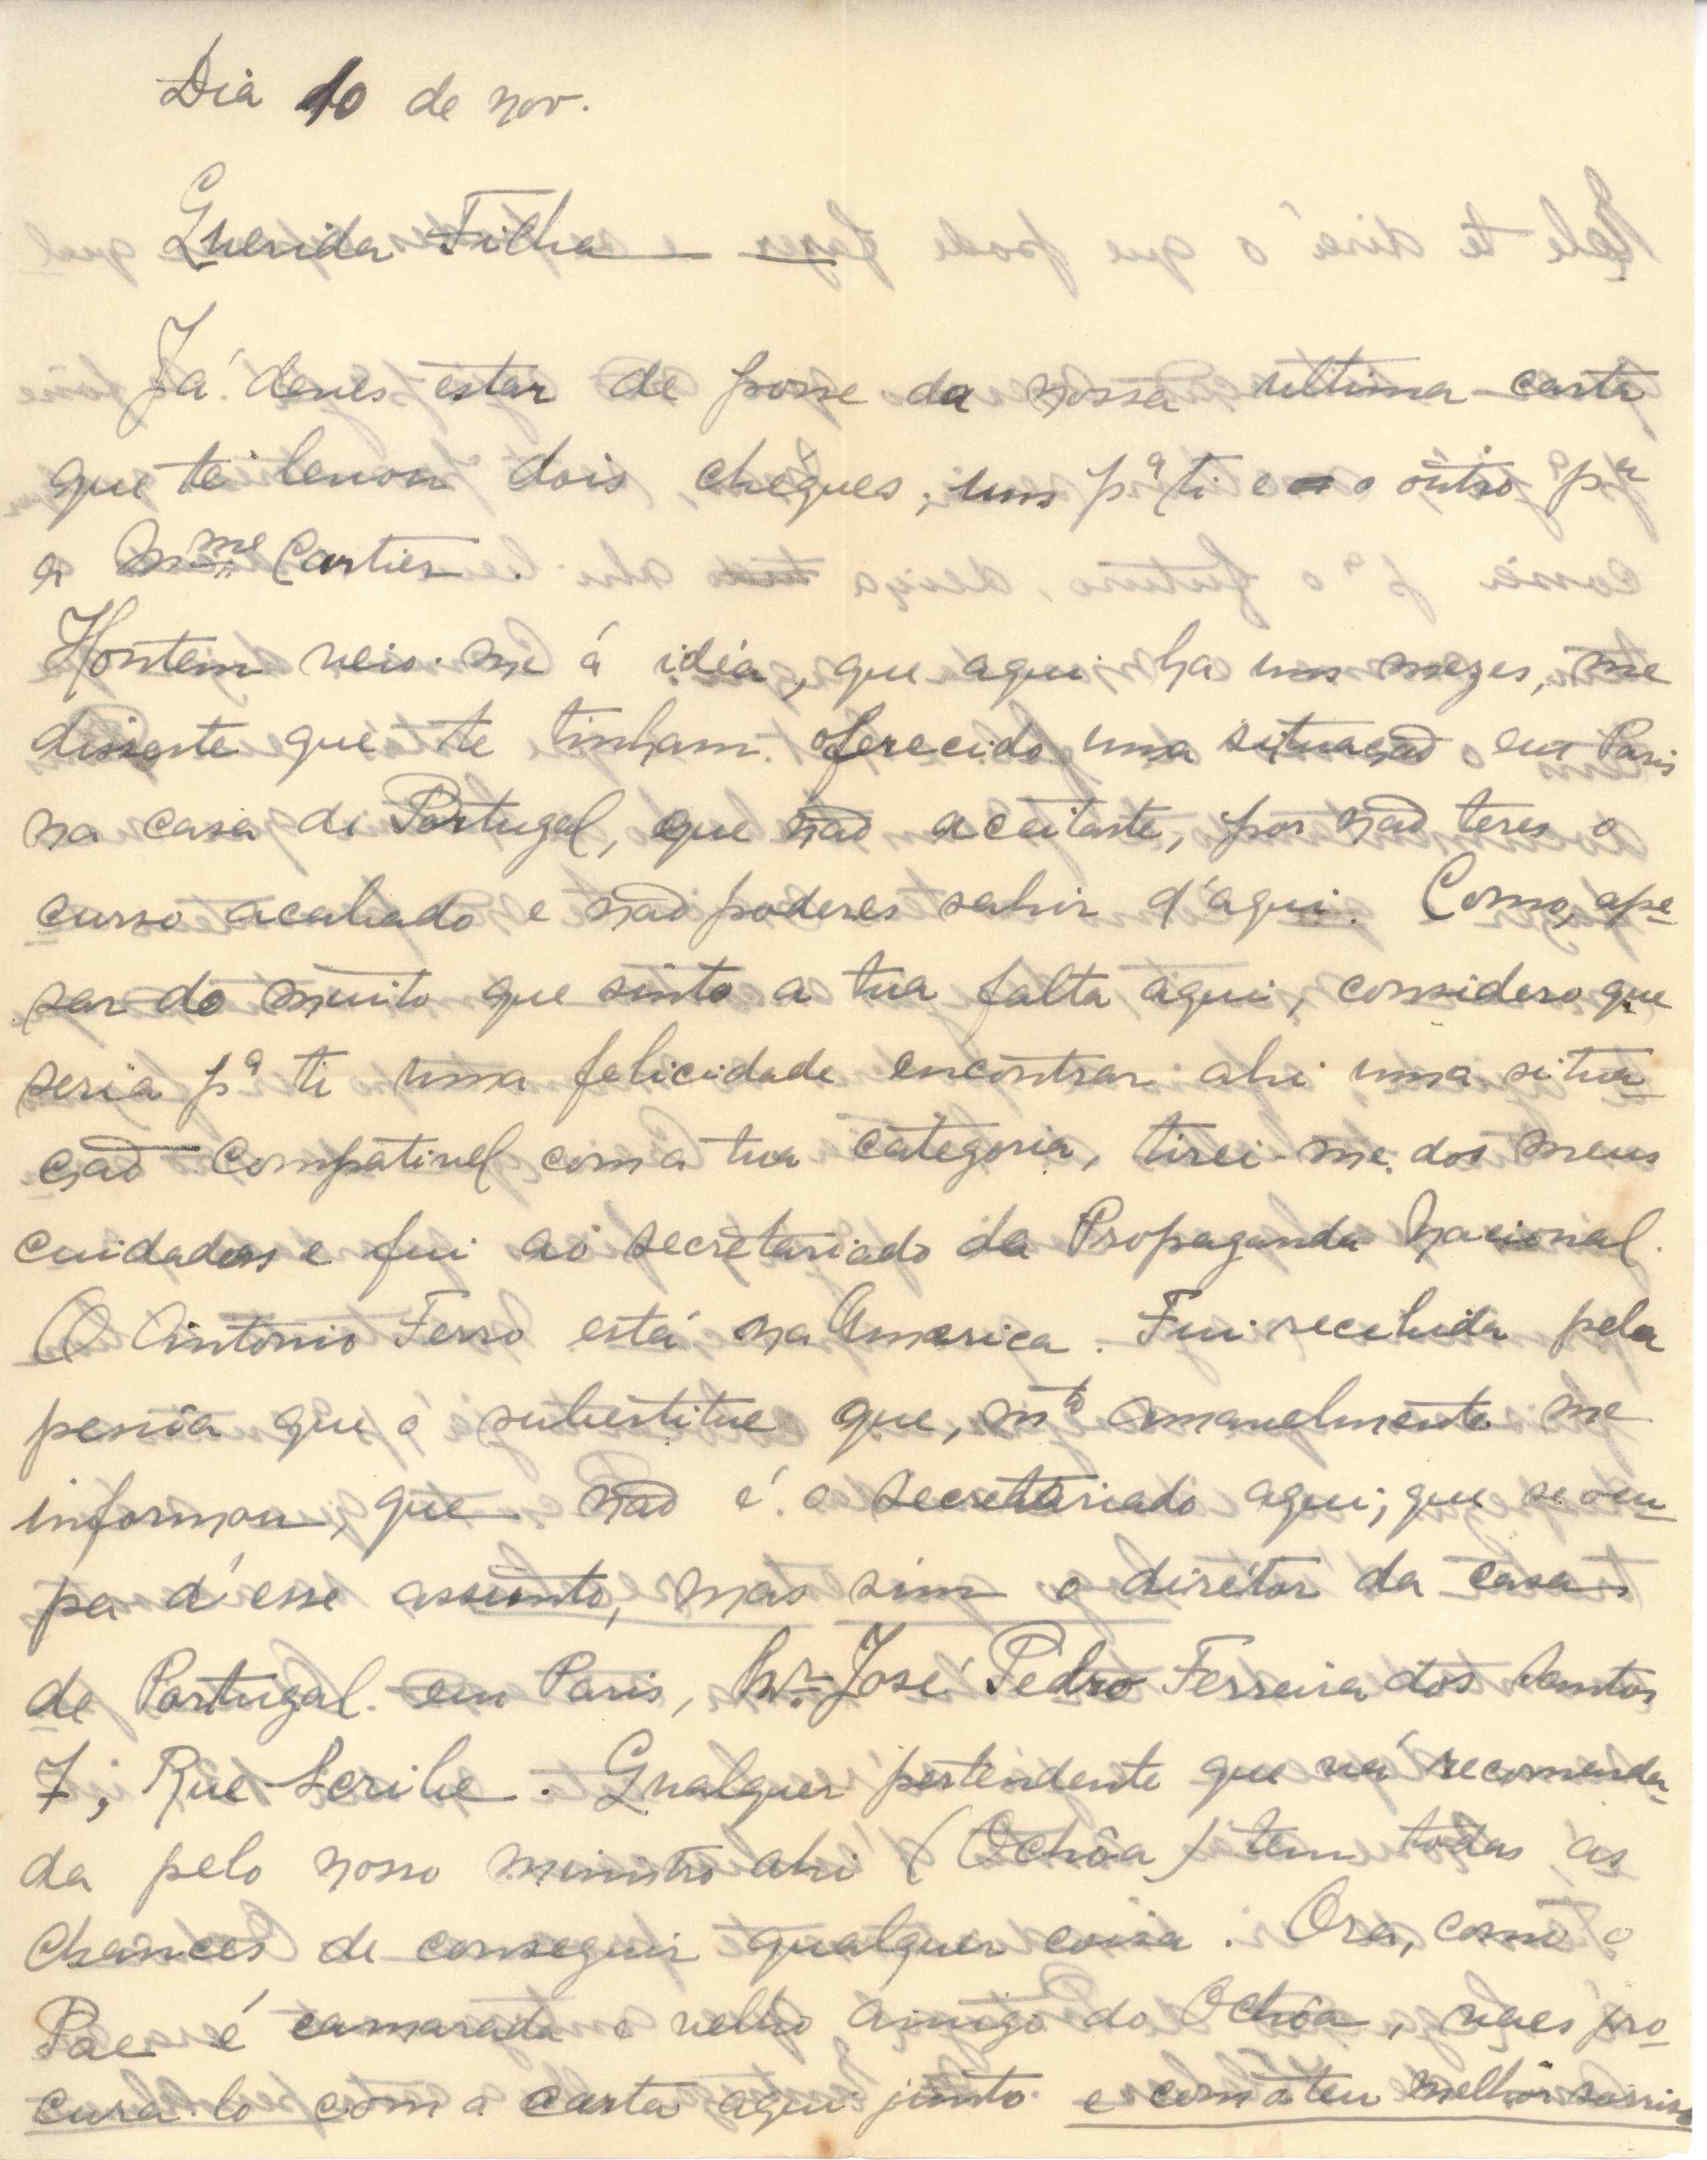 Dia 10 de nov.
Querida Filha
Já deves estar de posse da nossa ultima carta
que te levou dois chéques, um pª ti e o outro pª
a Mme Cartier.
Hontem veio-me á idéa, que aqui ha uns mezes, me
disseste que te tinham oferecido uma situação em Paris
na casa de Portugal, que não aceitaste, por não teres o
curso acabado e não poderes sahir d'aqui. Como, ape-
sar do muito que sinto a tua falta aqui, considero que
seria pª ti uma felicidade encontrar ahi uma situa-
ção compativel com a tua categoria, tirei-me dos meus
cuidados e fui ao secretariado da Propaganda Nacional.
O Antonio Ferro está na America. Fui recebida pela
pessôa que o substitue que, mtº amavelmente me
informou, que não é o secretariado aqui, que se ocu-
pa d'esse assunto, mas sim o diretor da casa
de Portugal em Paris, Snr. José Pedro Ferreira dos Santos
7, Rue Scribe. Qualquer pertendente que vá recomenda-
da pelo nosso ministro ahi (Ochôa) tem todas as
chances de conseguir qualquer coisa. Ora, como o
Pae é camarada e velho amigo do Ochôa, vaes pro-
cura-lo com a carta aqui junto e com o teu melhor sorriso